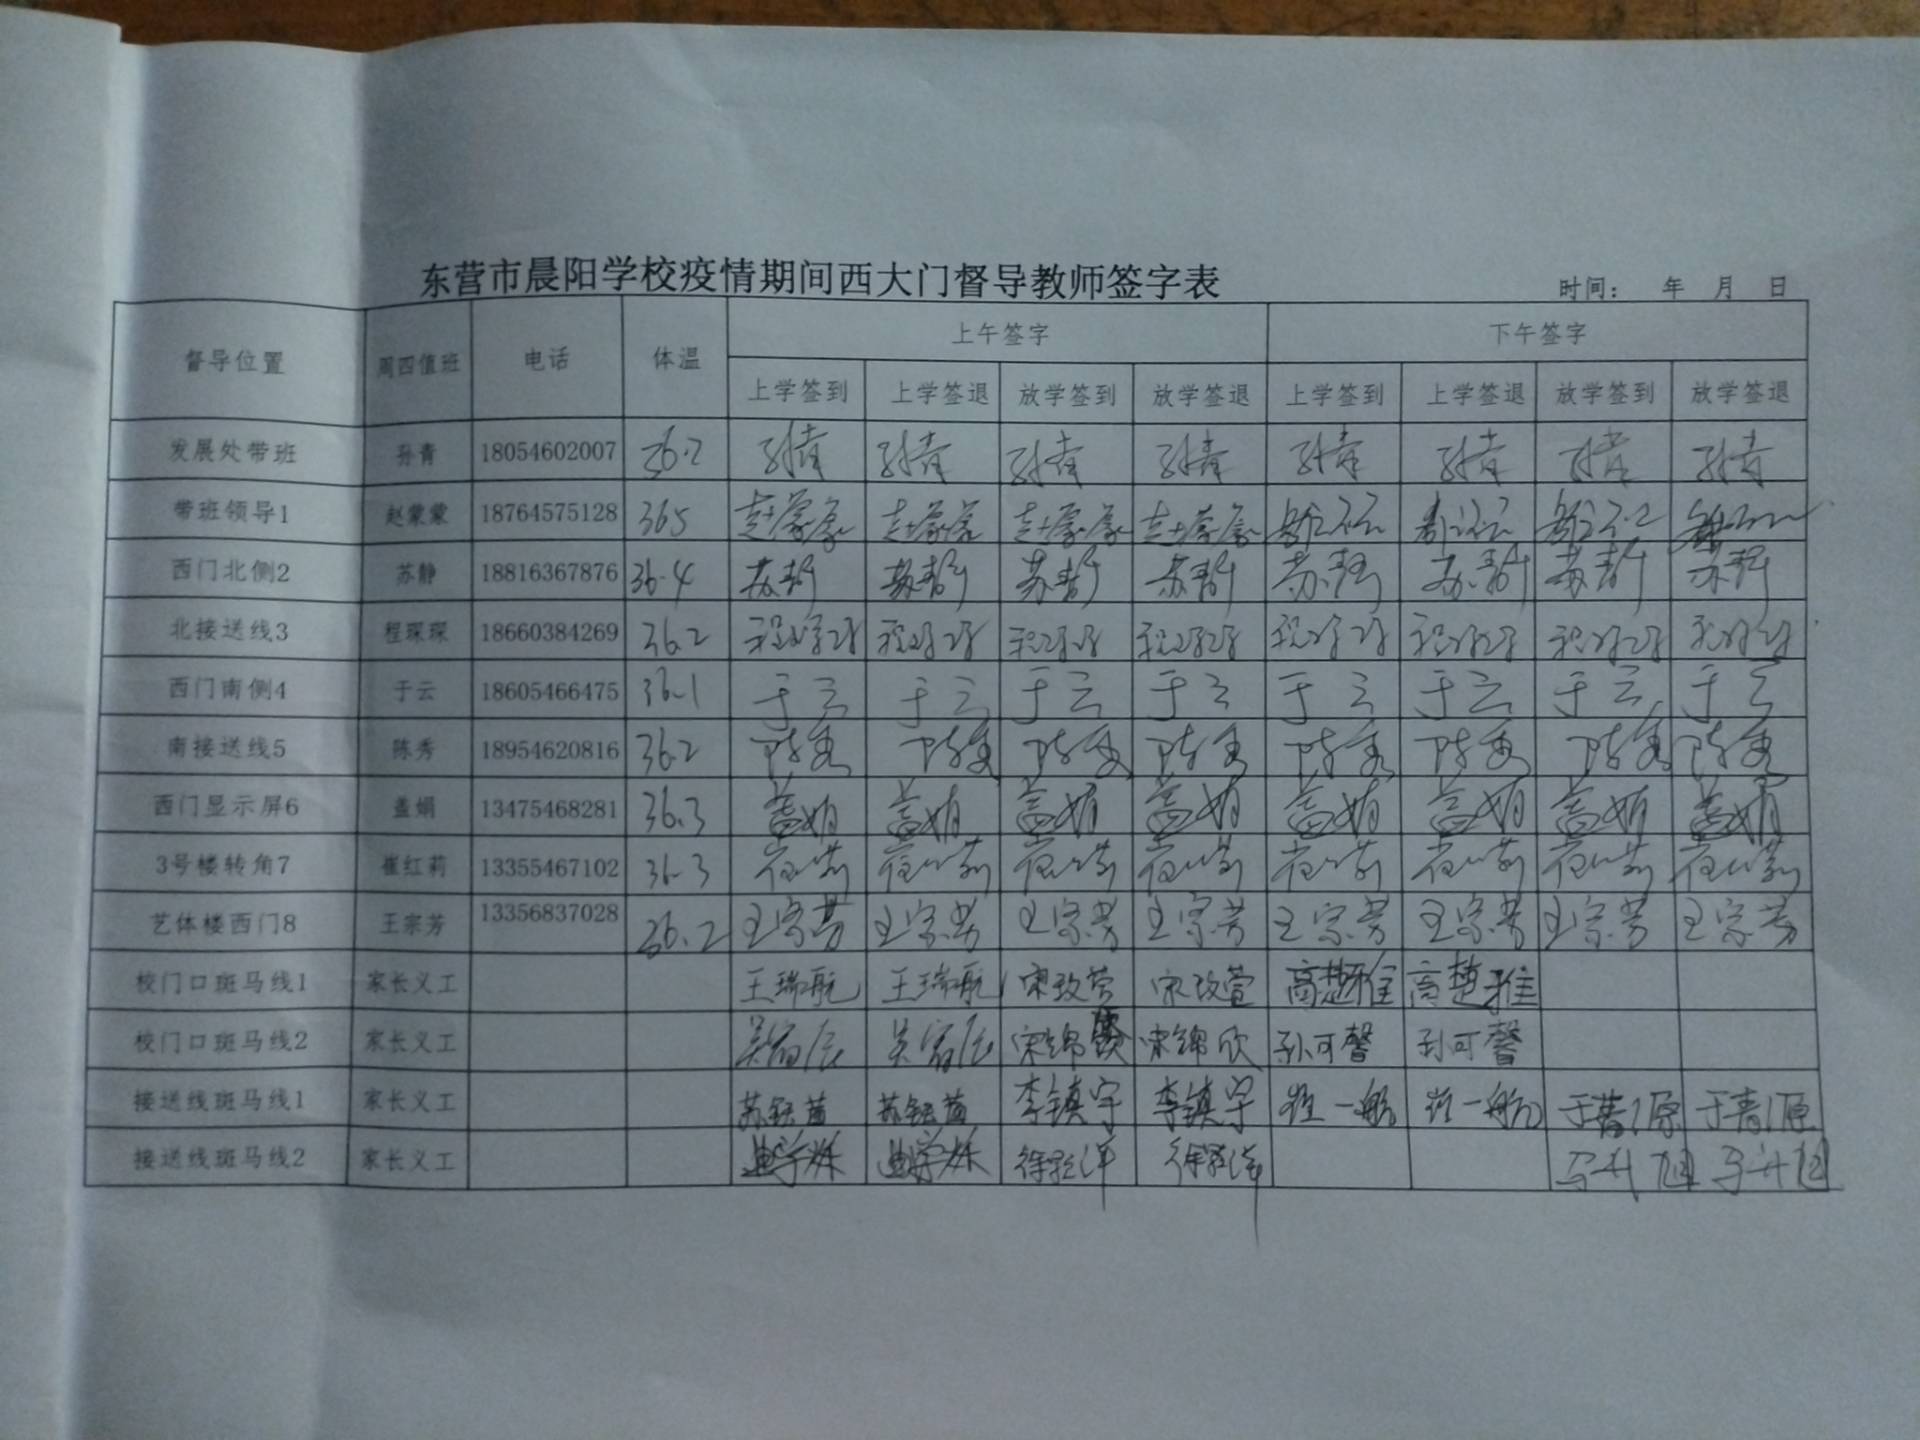 东营市晨阳学校疫情期间西大门督导教师签字表
时间： 年 月 日
督导位置 周四值班 电话 体温 上午签字 下午签字
上学签到 上学签退 放学签到 放学签退 上学签到 上学签退 放学签到 放学签退
发展处带班 孙青 18054602007 36.2 孙青 孙青 孙青 孙青 孙青 孙青 孙青 孙青
带班领导1 赵蒙蒙 18764575128 365 赵蒙蒙 赵蒙蒙 赵蒙蒙 赵蒙蒙
西门北侧2 苏静 18816367876 36.4 苏静 苏静 苏静 苏静 苏静 苏静 苏静 苏静
北接送线3 程琛琛 18660384269 36.2 程琛琛 程琛琛 程琛琛 程琛琛 程琛琛 程琛琛 程琛琛 程琛琛
西门南侧4 于云 18605466475 36.1 于云 于云 于云 于云 于云 于云 于云 于云
南接送线5 陈秀 18954620816 36.2 陈秀 陈秀 陈秀 陈秀 陈秀 陈秀 陈秀 陈秀
西门显示屏6 盖娟 13475468281 36.3 盖娟 盖娟 盖娟 盖娟 盖娟 盖娟 盖娟 盖娟
3号楼转角7 崔红莉 13355467102 36.3 崔红莉 崔红莉 崔红莉 崔红莉 崔红莉 崔红莉 崔红莉 崔红莉
艺体楼西门8 王宗芳 13356837028 36.2 王宗芳 王宗芳 王宗芳 王宗芳 王宗芳 王宗芳 王宗芳 王宗芳
校门口斑马线1 家长义工 王瑞航 王瑞航 宋玫萱 宋玫萱 高楚雅 高楚雅
校门口斑马线2 家长义工 宋锦欣 宋锦欣 孙可馨 孙可馨
接送线斑马线1 家长义工 李镇宇 李镇宇 崔一航 崔一航
接送线斑马线2 家长义工 马升旭 马升旭